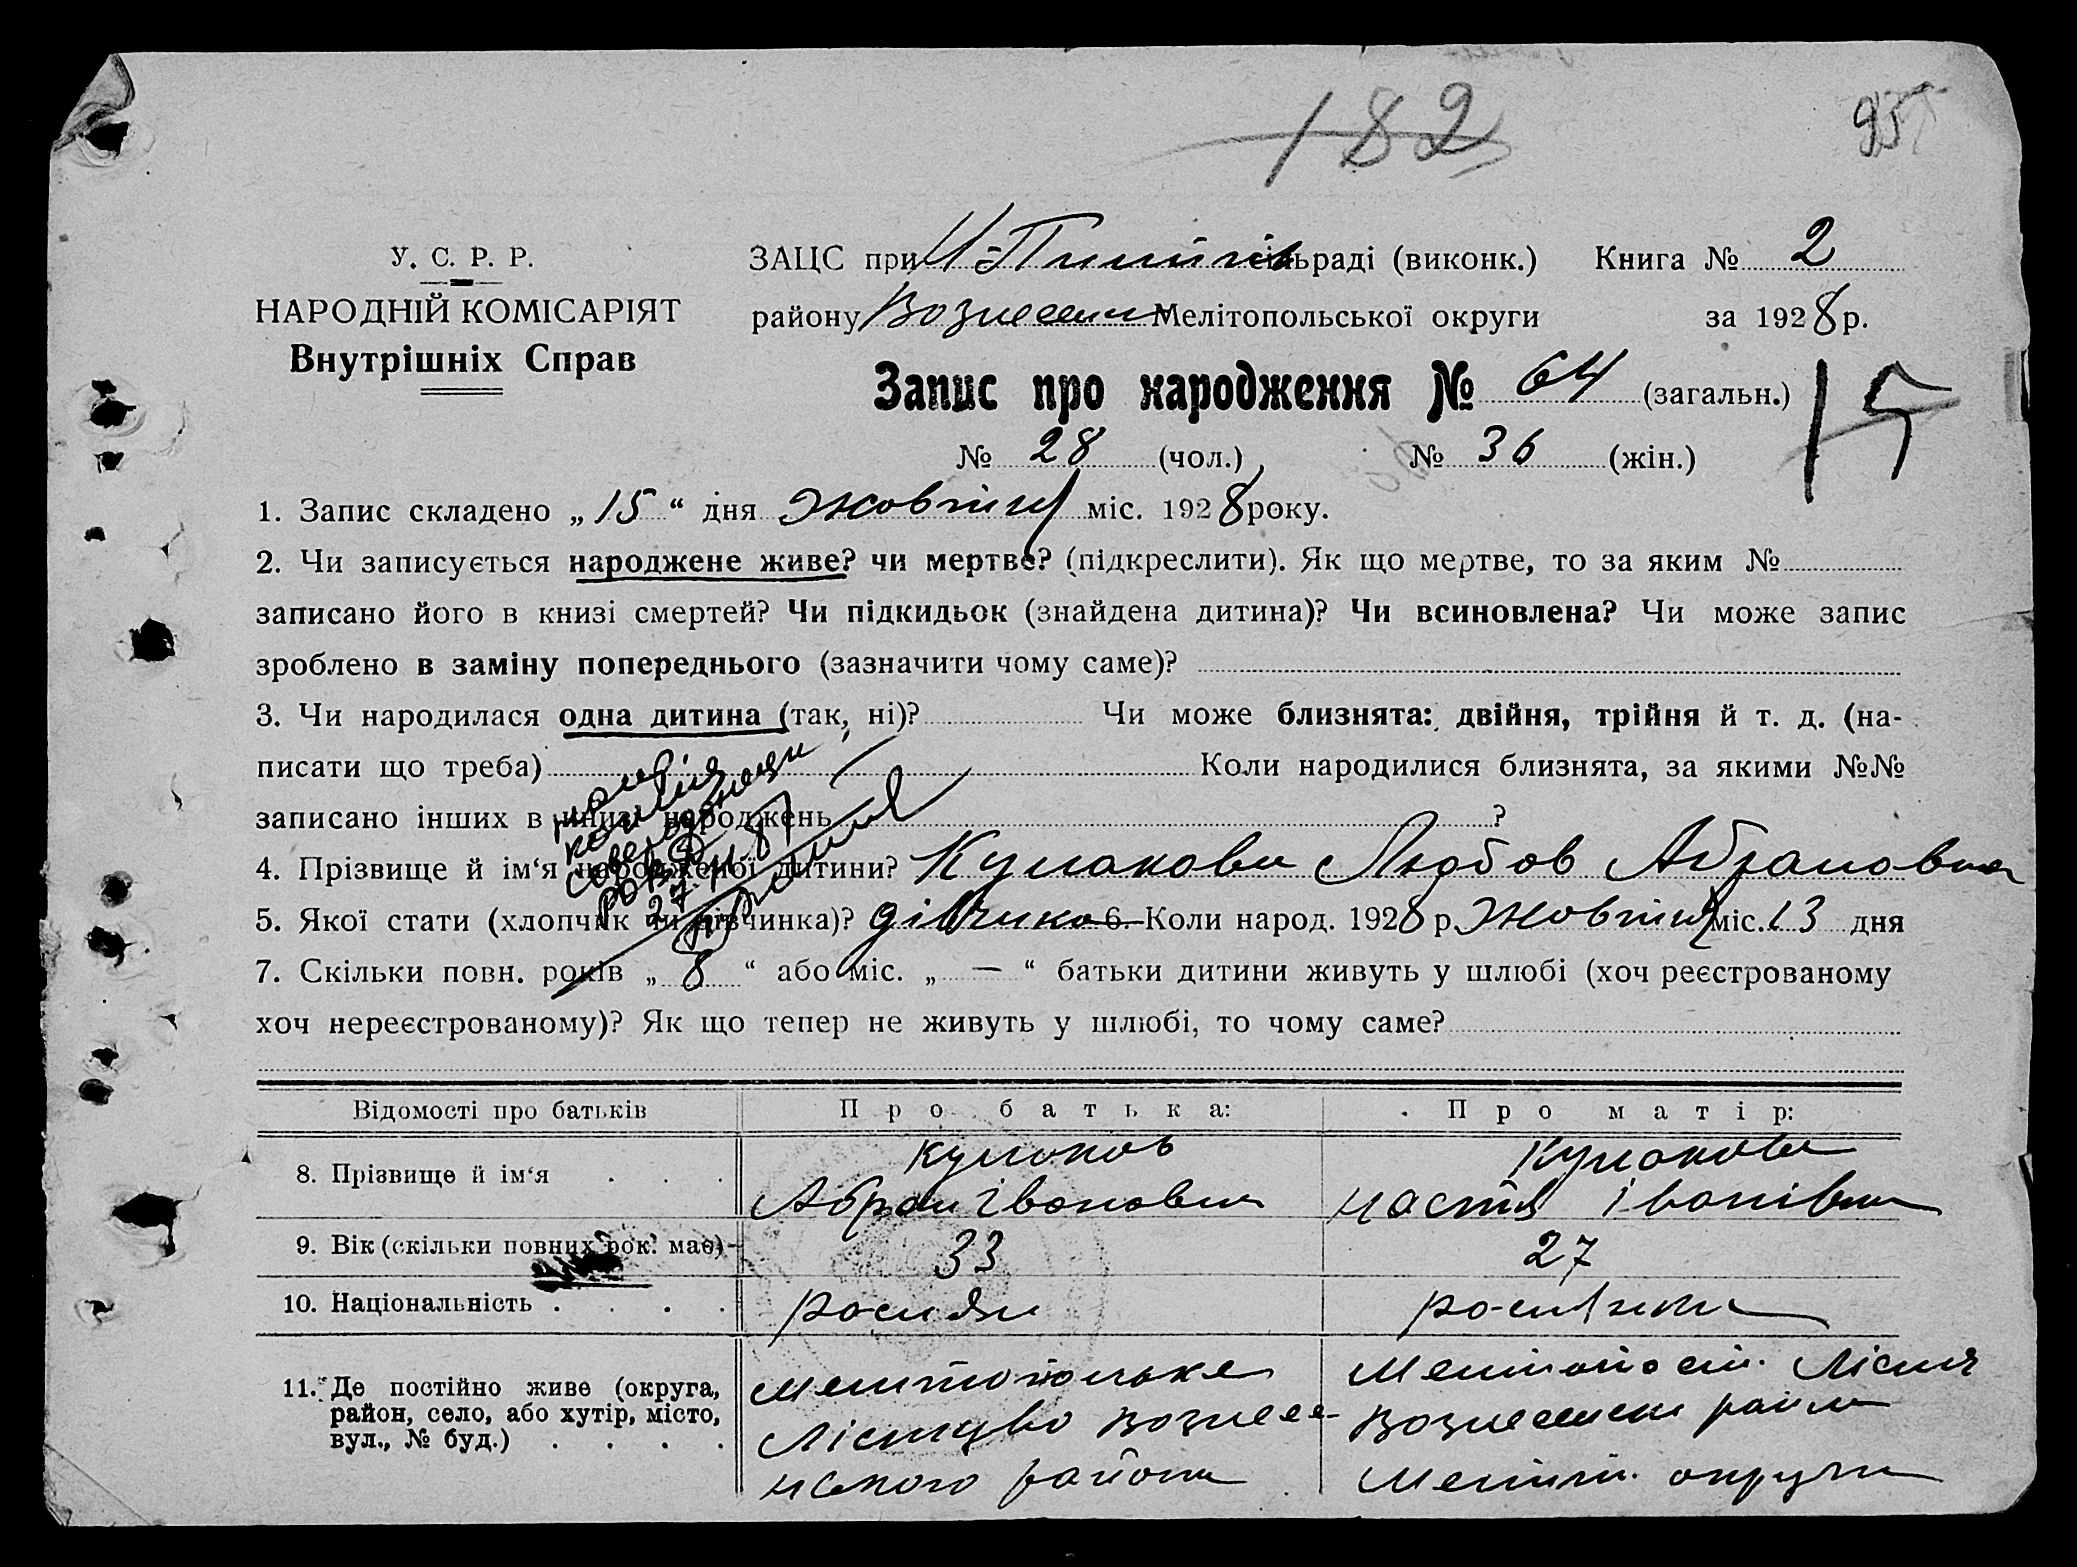 182
95
У. С. Р. Р.
НАРОДНІЙ КОМІСАРІЯТ
Внутрішніх Справ
ЗАЦС при сільраді (виконк.) Книга № 2
району Вознесен Мелітопольської округи за 1928 р.
Запис про народження № 64 (загальн.)
15
№ 28 (чол.) № 36 (жін.)
1. Запис складено „15“ дня Жовтня міс. 1928 року.
2. Чи записується народжене живе? чи мертве? (підкреслити). Як що мертве, то за яким №
записано його в книзі смертей? Чи підкидьок (знайдена дитина)? Чи всиновлена? Чи може запис
зроблено в заміну попереднього (зазначити чому саме)?
3. Чи народилася одна дитина (так, ні)? Чи може близнята: двійня, трійня й т. д. (на-
писати що треба) Коли народилися близнята, за якими №№
записано інших в книзі народжень ?
4. Прізвище й ім‘я народженої дитини? Кулакова Любов Абрамовна
5. Якої стати (хлопчик чи дівчинка)? дівчинка 6. Коли народ. 1928 р. Жовтня міс. 13 дня
7. Скільки повн. років „8“ або міс. „—“ батьки дитини живуть у шлюбі (хоч реєстрованому
хоч нереєстрованому)? Як що тепер не живуть у шлюбі, то чому саме?
Відомості про батьків Про батька: Про матір:
8. Прізвище й ім‘я . . . Кулаков Кулакова
Абрам Іванович Настя Іванівна
9. Вік (скільки повних рок. має) 33 27
10. Національність . . . . росіян росіянка
11. Де постійно живе (округа,
район, село, або хутір, місто,
вул., № буд.) . . . .
Мелітопольське
Лісництво Вознесе-
нського района
Мелітопо Лісн
Вознесенськ район
Меліт. округи